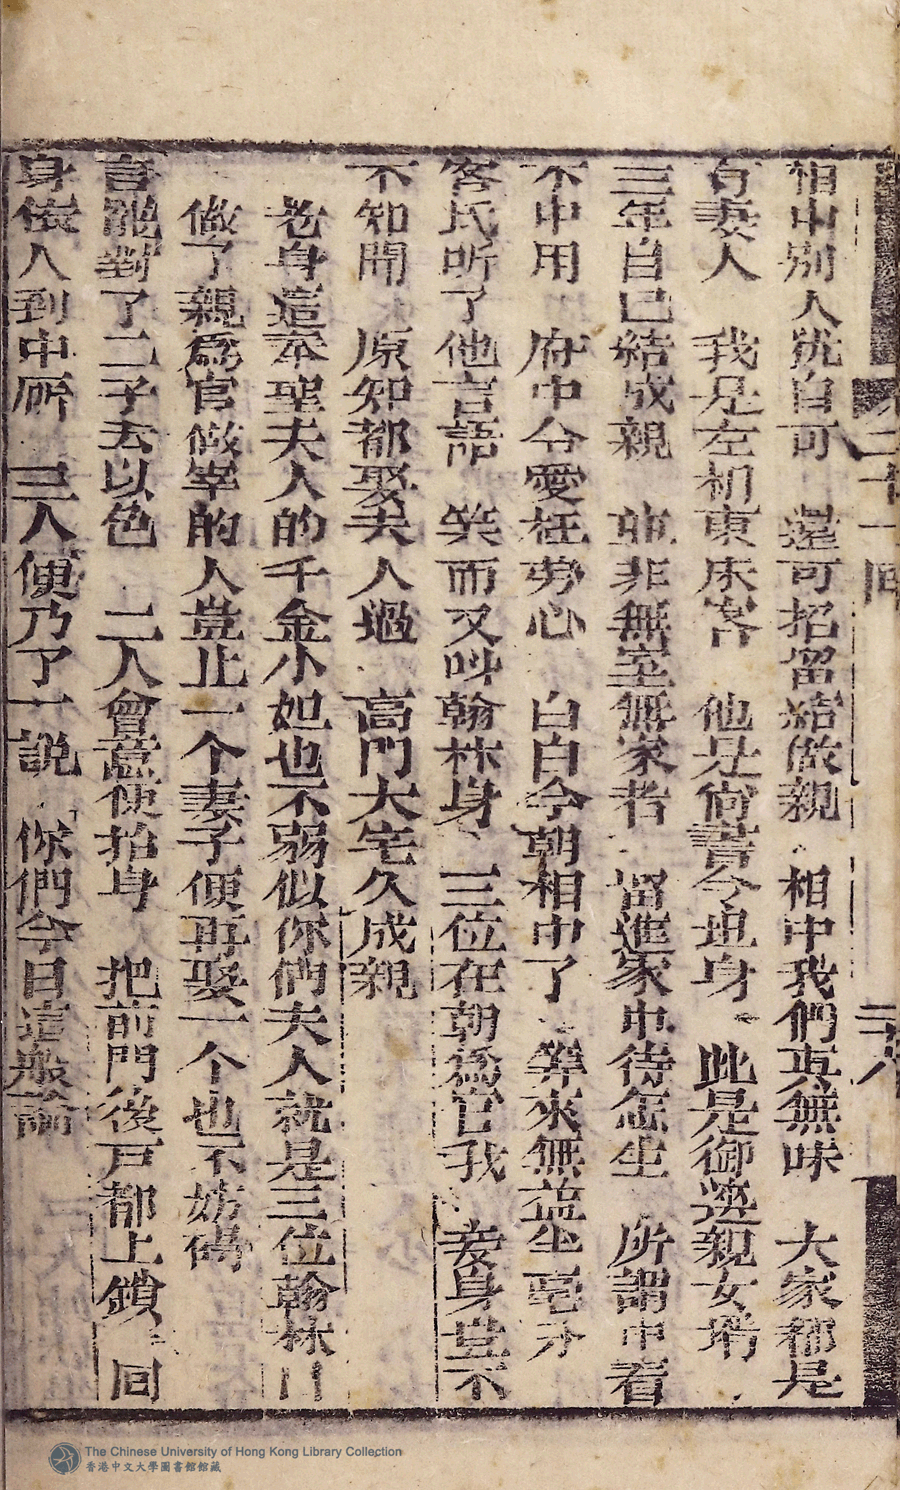 二十一回
三十八
相中別人犹自可　還可招留結做親　相中我們真無味　大家都是
有妻人　我是左相東床客　他是尚書令坦身　此是御選親女壻
三年自已結成親　並非無室無家者　留進家中待怎生　所謂中看
不中用　府中令愛枉勞心　白白今朝相中了　筭來無益半毫分
容氏听了他言語　笑而又叫翰林身　三位在朝為官我　妾身豈不
不知聞　原知都娶夫人過　高門大宅久成親
老身這本聖夫人的千金小姐也不弱似你們夫人就是三位翰林口
做了親為官做宰的人豈止一个妻子便再娶一个也不妨碍
言罷對了二子去以色　二人會意便抬身　把前門後戶都上鎖　回
身依人到中所　三人便乃了一説　你們今日這般論
The Chinese University of Hong Kong Library Collection
香港中文大學圖書館館藏